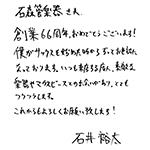 石森管楽器さん
創業66周年、おめでとうございます！
僕がサックスを始めた頃からずっとお世話に
なっております。いつも頼もる店員、素敵な
楽器やマウスピースとの出会いがあり、とても
ワクワクします。
これからもよろしくお願い致します！
石井裕太